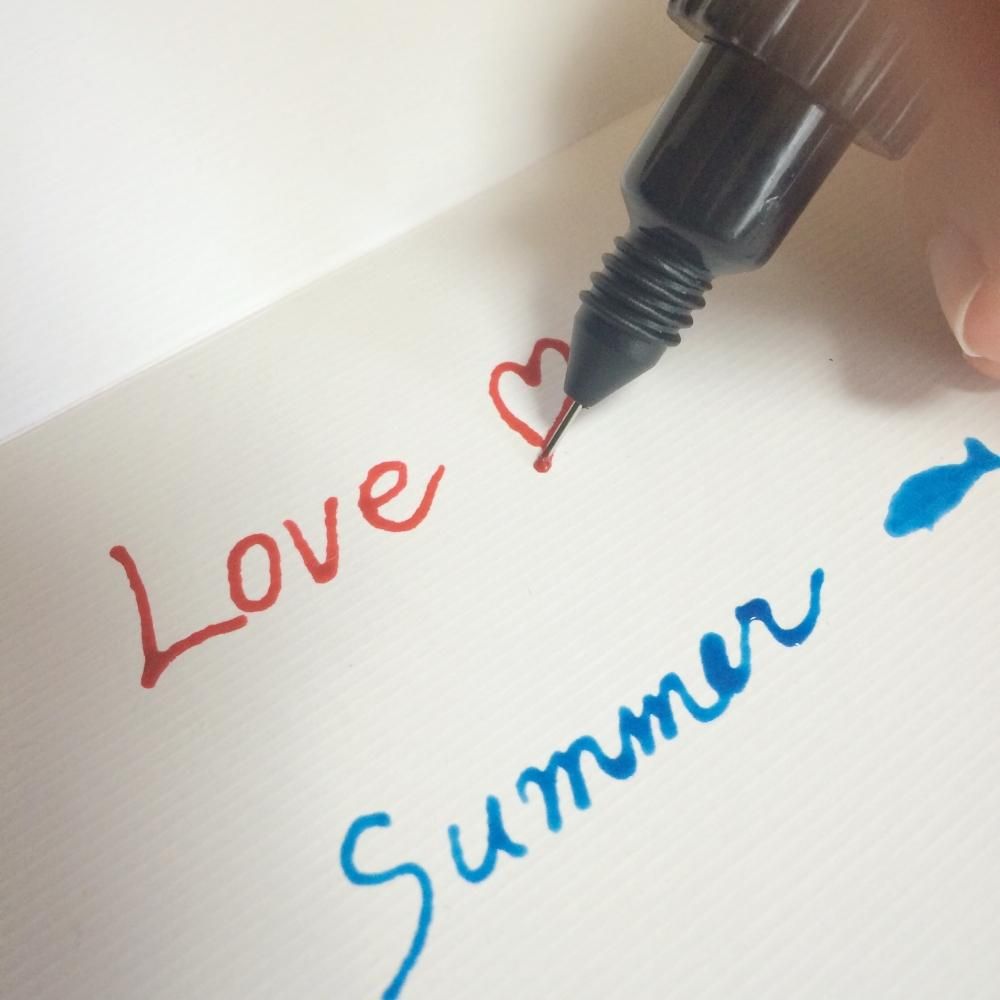 Love
Summer